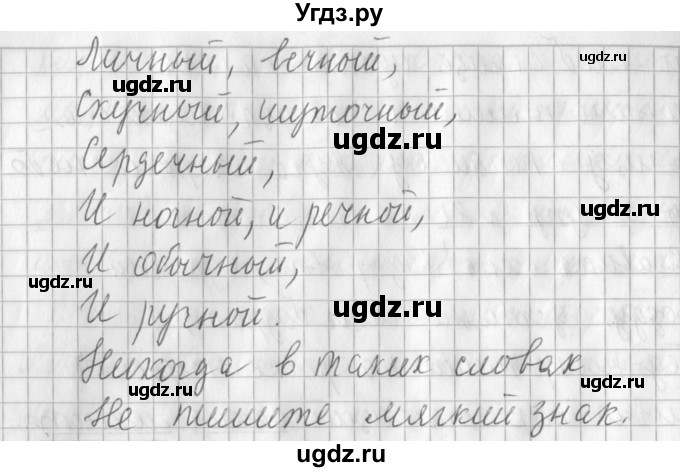 Угдз.ру
Личный, вечный,
ugdz.ru
ugdz.ru
Скучный, шуточный,
ugdz.ru
Сердечный,
ugdz.ru
И ночной, и речной,
ugdz.ru
И обычный,
ugdz.ru
И ручной.
ugdz.ru
Никогда в таких словах
ugdz.ru
ugdz.ru
Не пишите мягкий знак.
Угдз.ру